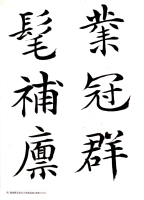 業冠群
髦補廩